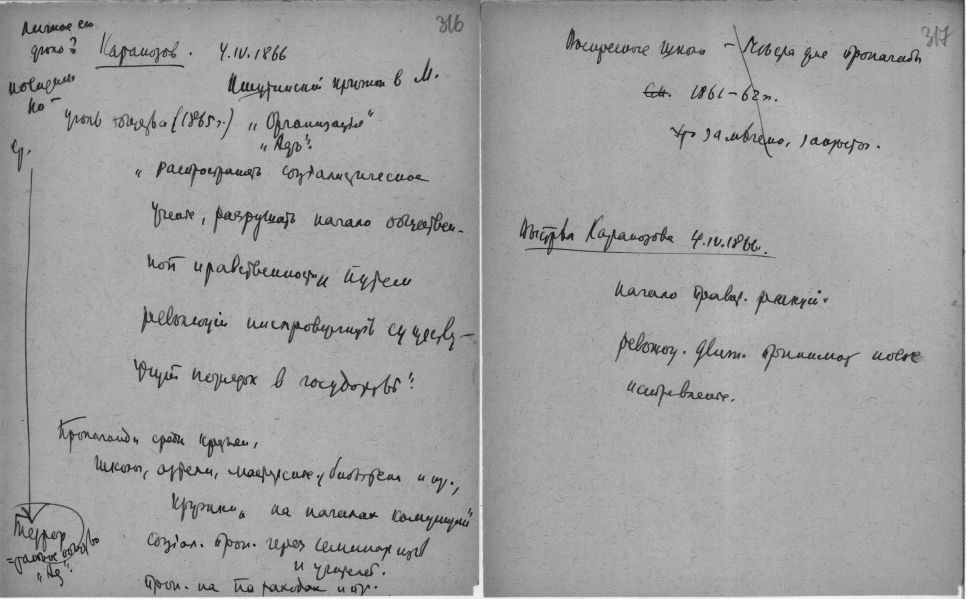 личное его
дело?
316
Каракозов. 4.IV.1866
Ишутинский кружок в М.
члены общества (1865 г.) „Организация"
„Адъ".
„распространять социалистическое
учение, разрушать начало обществен-
ной нравственности и путем
революции ниспровергнуть существу-
ющий порядок в государстве".
Пропаганда среди
Школы, артели, мастерские, библиотеки и пр.,
кружки на началах коммуны
социал. проп. через семинаристов
и учителей.
проп. на пароходах и пр.
Террор
„Ад".
317
Воскресные школы – для пропаганды
См. 1861–62 г.
замечено, закрыто.
Выстрел Каракозова 4.IV.1866.
начало правит. реакции.
революц. движ. принимает новое
направление.